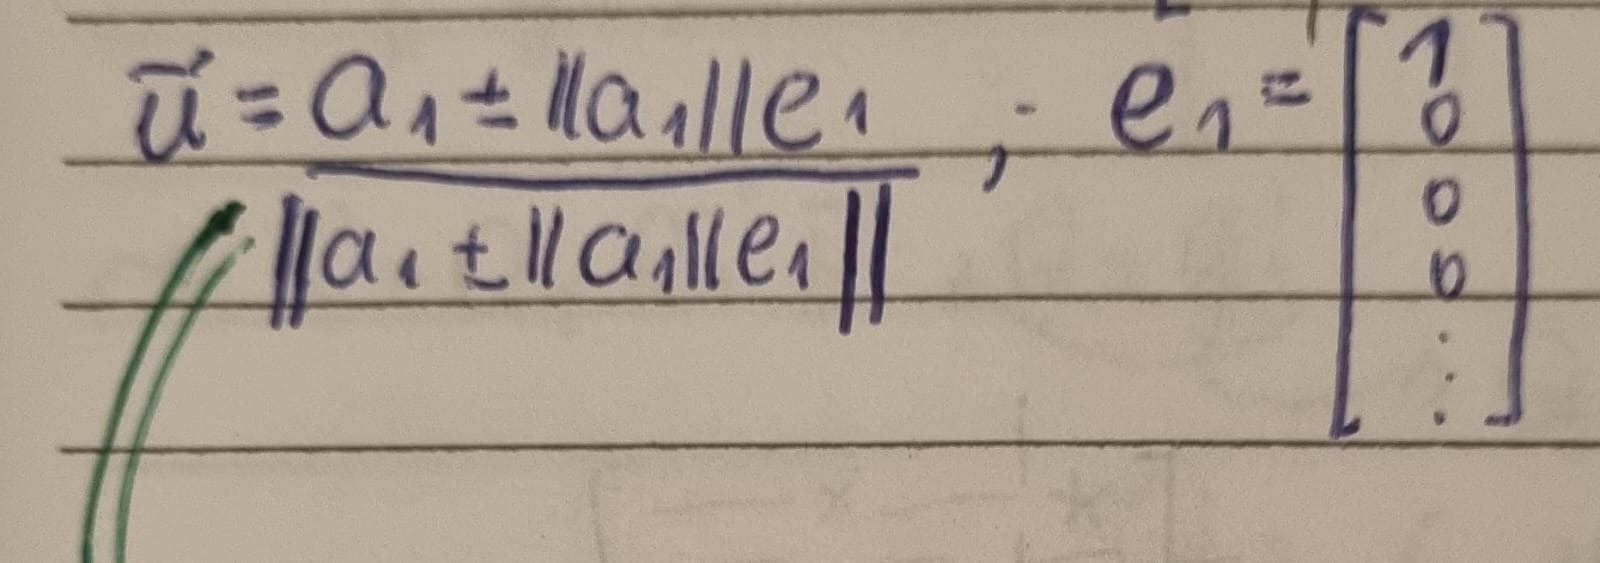 u⃗ = a₁ ± ||a₁||e₁ / ||a₁ ± ||a₁||e₁|| , · e₁ = [1 0 0 0 ⋮]